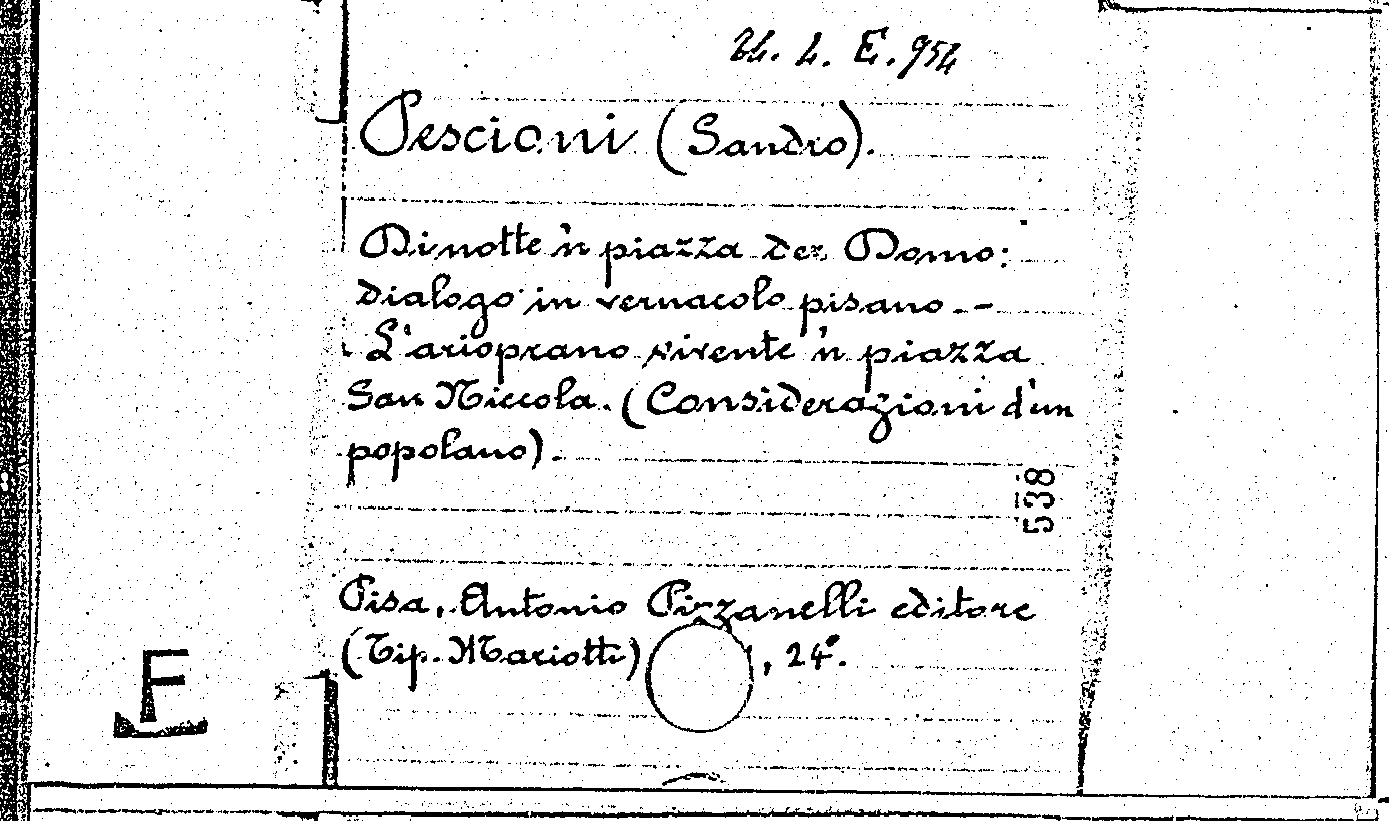 Th. 4. E. 954
Pescioni (Sandro).
Di notte 'n piazza der Domo:
dialogo in vernacolo pisano. -
L'arioprano vivente 'n piazza
San Niccola. (Considerazioni d'un
popolano).
538
Pisa, Antonio Pizzanelli editore
(Tip. Mariotti) , 24°.
F